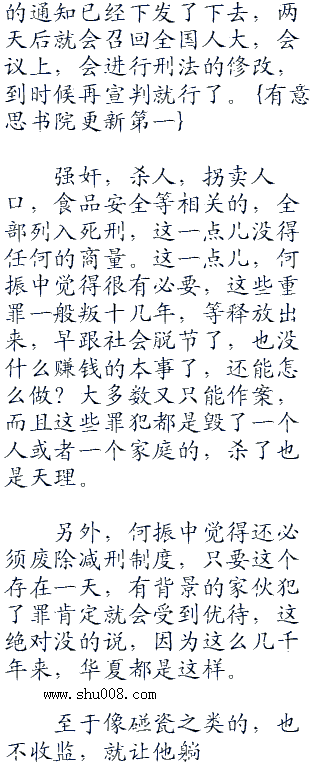 的通知已经下发了下去，两
天后就会召回全国人大，会
议上，会进行刑法的修改，
到时候再宣判就行了。{有意
思书院更新第一}
强奸，杀人，拐卖人
口，食品安全等相关的，全
部列入死刑，这一点儿没得
任何的商量。这一点儿，何
振中觉得很有必要，这些重
罪一般叛十几年，等释放出
来，早跟社会脱节了，也没
什么赚钱的本事了，还能怎
么做？大多数又只能作案，
而且这些罪犯都是毁了一个
人或者一个家庭的，杀了也
是天理。
另外，何振中觉得还必
须废除减刑制度，只要这个
存在一天，有背景的家伙犯
了罪肯定就会受到优待，这
绝对没的说，因为这么几千
年来，华夏都是这样。
www.shu008.com
至于像碰瓷之类的，也
不收监，就让他躺